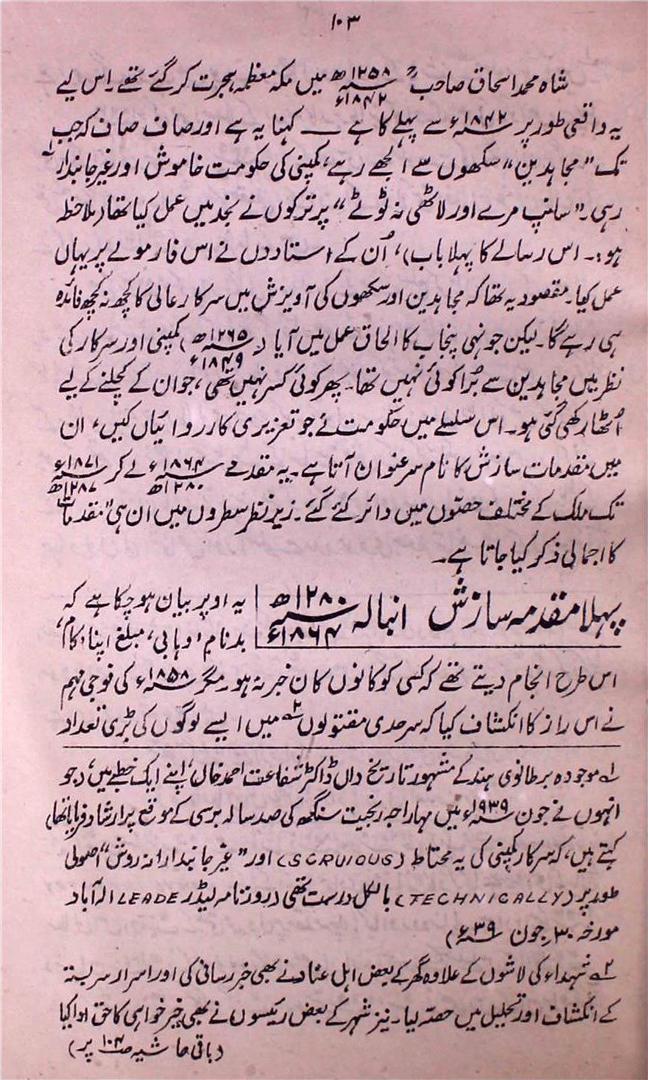 ۱۰۳
شاہ محمد اسحاق صاحبؒ ۱۲۵۸ھ ۱۸۴۲ء میں مکہ معظمہ ہجرت کر گئے تھے۔ اس لیے
یہ واقعی طور پر ۱۸۴۲ء سے پہلے کا ہے — کہنا یہ ہے اور صاف صاف کہ جب
تک "مجاہدین" سکھوں سے الجھے رہے، کمپنی کی حکومت خاموش اور غیر جانبدار۱
رہی۔ "سانپ مرے اور لاٹھی نہ ٹوٹے" پر ترکوں نے نجد میں عمل کیا تھا (ملاحظہ
ہو:۔ اس رسالے کا پہلا باب)، اُن کے استادوں نے اس فارمولے پر یہاں
عمل کیا۔ مقصود یہ تھا کہ مجاہدین اور سکھوں کی آویزش میں سرکار عالی کا کچھ نہ کچھ فائدہ
ہی رہے گا۔ لیکن جونہی پنجاب کا الحاق عمل میں آیا (۱۲۶۵ھ ۱۸۴۹ء) کمپنی اور سرکار کی
نظر میں مجاہدین سے بُرا کوئی نہیں تھا۔ پھر کوئی کسر نہیں تھی، جو ان کے کچلنے کے لیے
اُٹھا رکھی گئی ہو۔ اس سلسلے میں حکومت نے جو تعزیری کارروائیاں کیں، ان
میں مقدمات سازش کا نام سرعنوان آتا ہے۔ یہ مقدمے ۱۸۶۴ء ۱۲۸۰ھ سے لے کر ۱۸۷۱ء ۱۲۸۷ھ
تک ملک کے مختلف حصّوں میں دائر کئے گئے۔ زیر نظر سطروں میں ان ہی "مقدمات"
کا اجمالی ذکر کیا جاتا ہے۔
پہلا مقدمہ سازش انبالہ ۱۲۸۰ھ ۱۸۶۴ء
یہ اوپر بیان ہو چکا ہے کہ
بدنام 'وہابی' مبلغ اپنا 'کام'
اس طرح انجام دیتے تھے کہ کسی کو کانوں کان خبر نہ ہو۔ مگر ۱۸۵۸ء کی فوجی مہم
نے اس راز کا انکشاف کیا کہ سرحدی مقتولوں۲ میں ایسے لوگوں کی بڑی تعداد
۱ موجودہ برطانوی ہند کے مشہور تاریخ داں ڈاکٹر شفاعت احمد خاں، اپنے ایک خطبے میں، (جو
انہوں نے جون ۱۹۳۹ء میں مہاراجہ رنجیت سنگھ کی صد سالہ برسی کے موقع پر ارشاد فرمایا تھا)
کہتے ہیں، کہ سرکار کمپنی کی یہ محتاط (SCRUIOUS) اور "غیر جانبدارانہ روش" اصولی
طور پر (TECHNICALLY) بالکل درست تھی (روزنامہ لیڈر LEADE الہ آباد
مورخہ ۳۰ جون ۳۹ء)
۲ شہداء کی لاشوں کے علاوہ گھر کے بعض اہل عناد نے بھی خبر رسانی کی اور اسرار سربستہ
کے انکشاف اور تحلیل میں حصہ لیا۔ نیز شہر کے بعض رئیسوں نے بھی خیر خواہی کا حق ادا کیا
(باقی حاشیہ صـ۱۰۴ پر)